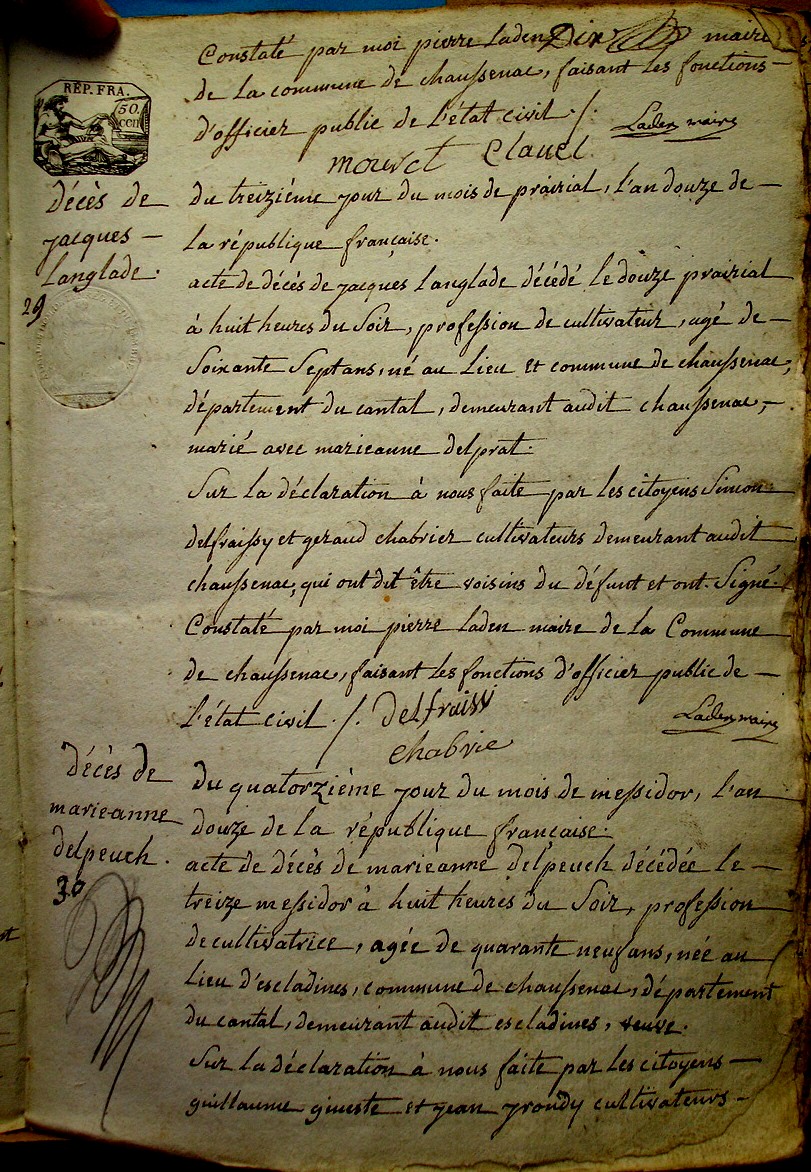 Constaté par moi pierre Laden Dix maire
de la commune de chaussenac, faisant les fonctions
d'officier public de l'état civil ./.
Laden maire
mouret Clauel
RÉP. FRA.
50
cen
décès de
jacques
Langlade.
29
du treizième jour du mois de prairial, l'an douze de
la république française.
acte de décès de jacques Langlade décédé le douze prairial
à huit heures du Soir, profession de cultivateur, agé de
Soixante Sept ans, né au Lieu et commune de chaussenac,
département du cantal, demeurant audit chaussenac,
marié avec marieanne delprat.
Sur la déclaration à nous faite par les citoyens Simon
delfraissy et geraud chabrier cultivateurs demeurant audit
chaussenac, qui ont dit être voisins du défunt et ont Signé.
Constaté par moi pierre Laden maire de la Commune
de chaussenac, faisant les fonctions d'officier public de
l'état civil ./. delfraissi
Laden maire
chabrie
décès de
marie-anne
delpeuch.
30
du quatorzième jour du mois de messidor, l'an
douze de la république française.
acte de décès de marieanne delpeuch décédée le
treize messidor à huit heures du Soir, profession
de cultivatrice, agée de quarante neuf ans, née au
Lieu d'escladines, commune de chaussenac, département
du cantal, demeurant audit escladines, veuve.
Sur la déclaration à nous faite par les citoyens
guillaume gineste et jean jrondy cultivateurs